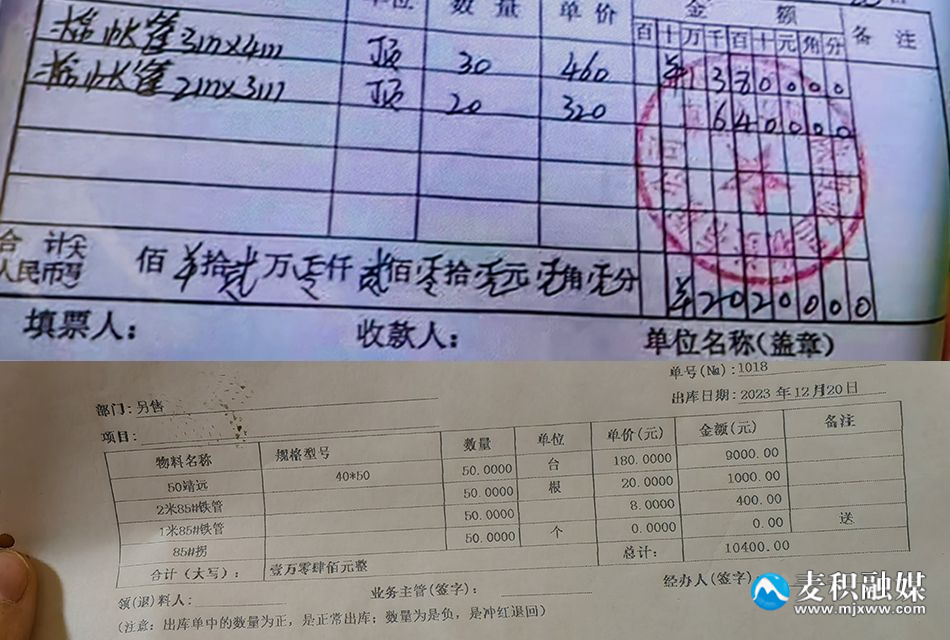 单位 数量 单价 金额 备注
百 十 万 千 百 十 元 角 分
棉帐篷 3m×4m 顶 30 460 ¥1380000
棉帐篷 2m×3m 顶 20 320 640000
合计大写人民币 佰 ¥ 拾 贰 万 零 仟 贰 佰 零 拾 零 元 零 角 零 分 ¥2020000
填票人： 收款人： 单位名称(盖章)
单号(№)：1018
部门：另售 出库日期：2023 年 12 月 20 日
项目：
物料名称 规格型号 数量 单位 单价(元) 金额(元) 备注
50靖远 40*50 50.0000 台 180.0000 9000.00
2米85#铁管 50.0000 根 20.0000 1000.00
1米85#铁管 50.0000 8.0000 400.00
85#拐 50.0000 个 0.0000 0.00 送
合计(大写)： 壹万零肆佰元整 总计： 10400.00
领(退)料人： 业务主管(签字)： 经办人(签字)
(注意：出库单中的数量为正，是正常出库；数量为是负，是冲红退回)
麦积融媒
www.mjxww.com